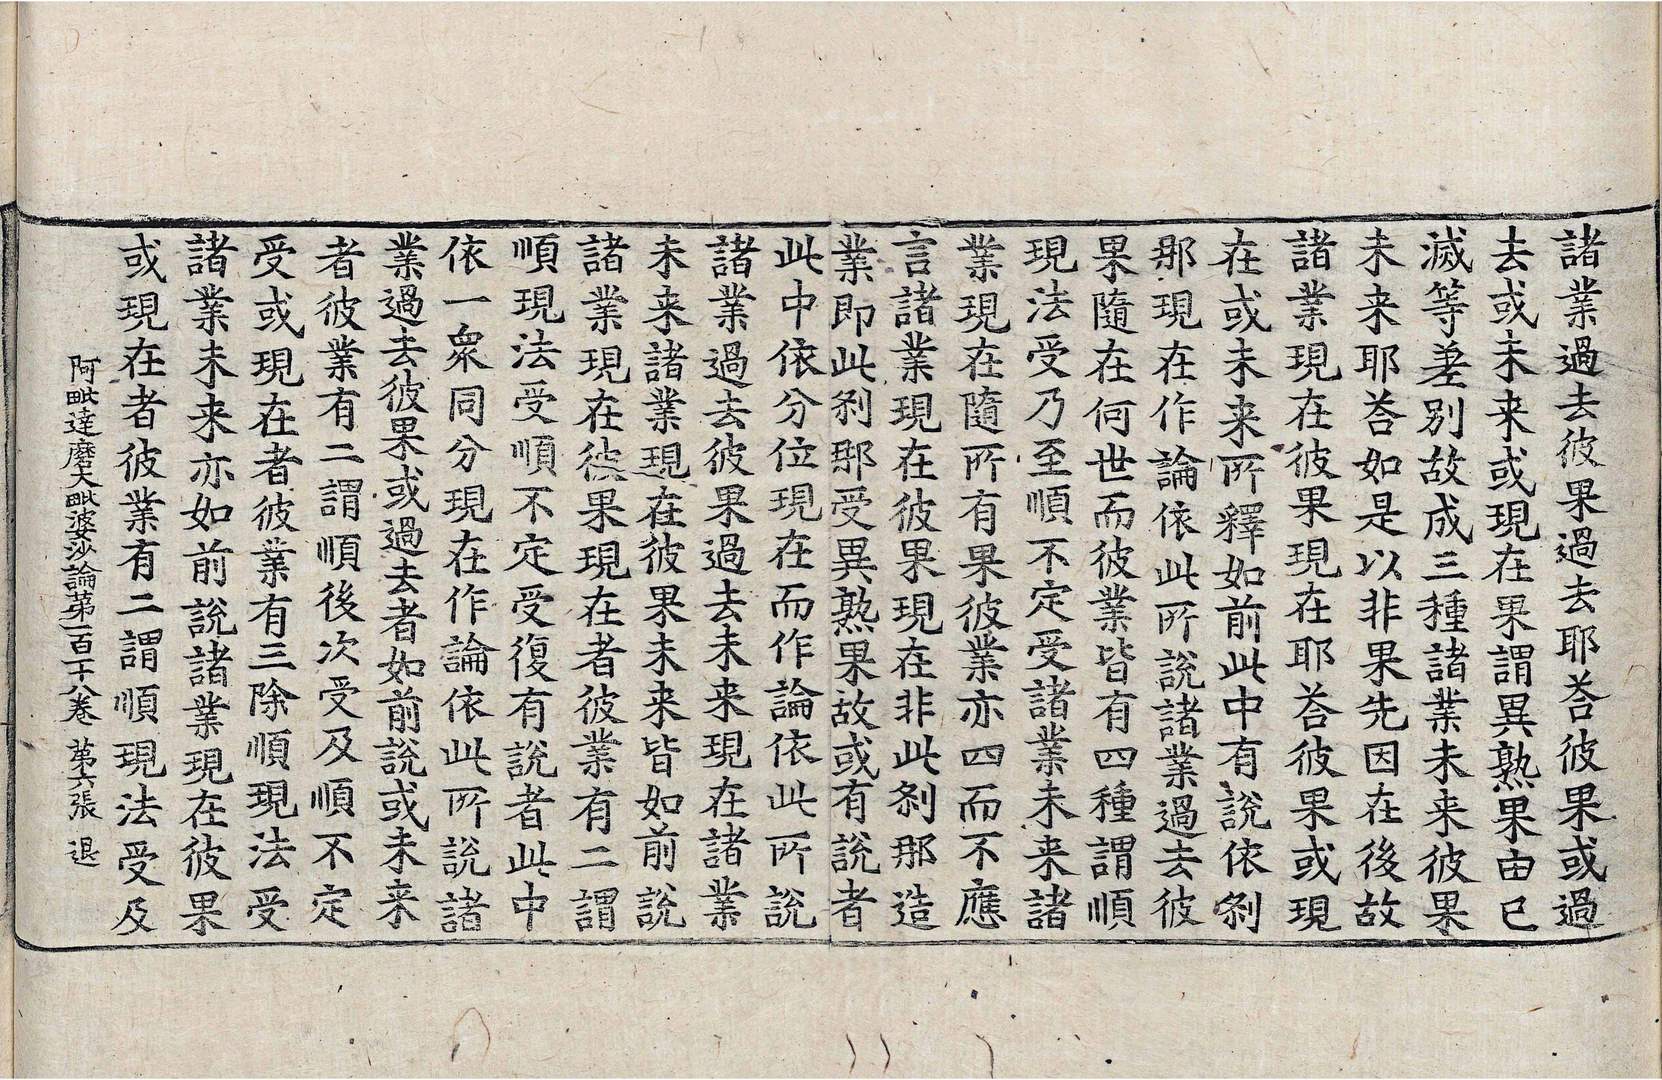 諸業過去彼果過去耶荅彼果或過
去或未来或現在果謂異熟果由已
滅等差别故成三種諸業未来彼果
未来耶荅如是以非果先因在後故
諸業現在彼果現在耶荅彼果或現
在或未来所釋如前此中有說依剎
那現在作論依此所說諸業過去彼
果隨在何世而彼業皆有四種謂順
現法受乃至順不定受諸業未来諸
業現在隨所有果彼業亦四而不應
言諸業現在彼果現在非此剎那造
業即此剎那受異熟果故或有說者
此中依分位現在而作論依此所說
諸業過去彼果過去未来現在諸業
未来諸業現在彼果未来皆如前說
諸業現在彼果現在者彼業有二謂
順現法受順不定受復有說者此中
依一衆同分現在作論依此所說諸
業過去彼果或過去者如前說或未来
者彼業有二謂順後次受及順不定
受或現在者彼業有三除順現法受
諸業未来亦如前說諸業現在彼果
或現在者彼業有二謂順現法受及
阿毗達磨大毗婆沙論第一百一十八卷 第六張 退